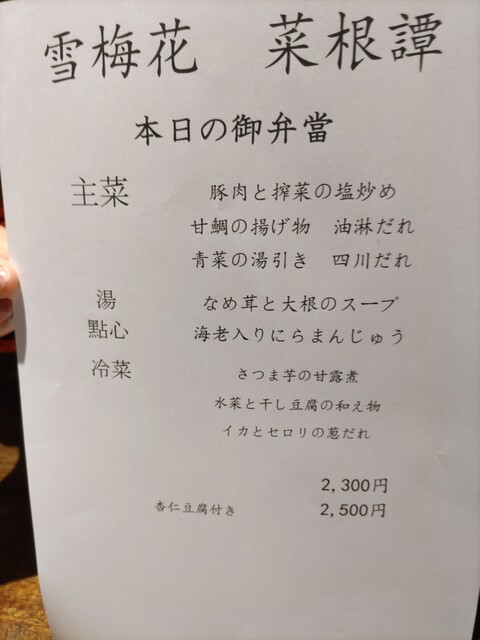 雪梅花 菜根譚
本日の御弁當
主菜 豚肉と搾菜の塩炒め
甘鯛の揚げ物 油淋だれ
青菜の湯引き 四川だれ
湯 なめ茸と大根のスープ
點心 海老入りにらまんじゅう
冷菜 さつま芋の甘露煮
水菜と干し豆腐の和え物
イカとセロリの葱だれ
2,300円
杏仁豆腐付き 2,500円